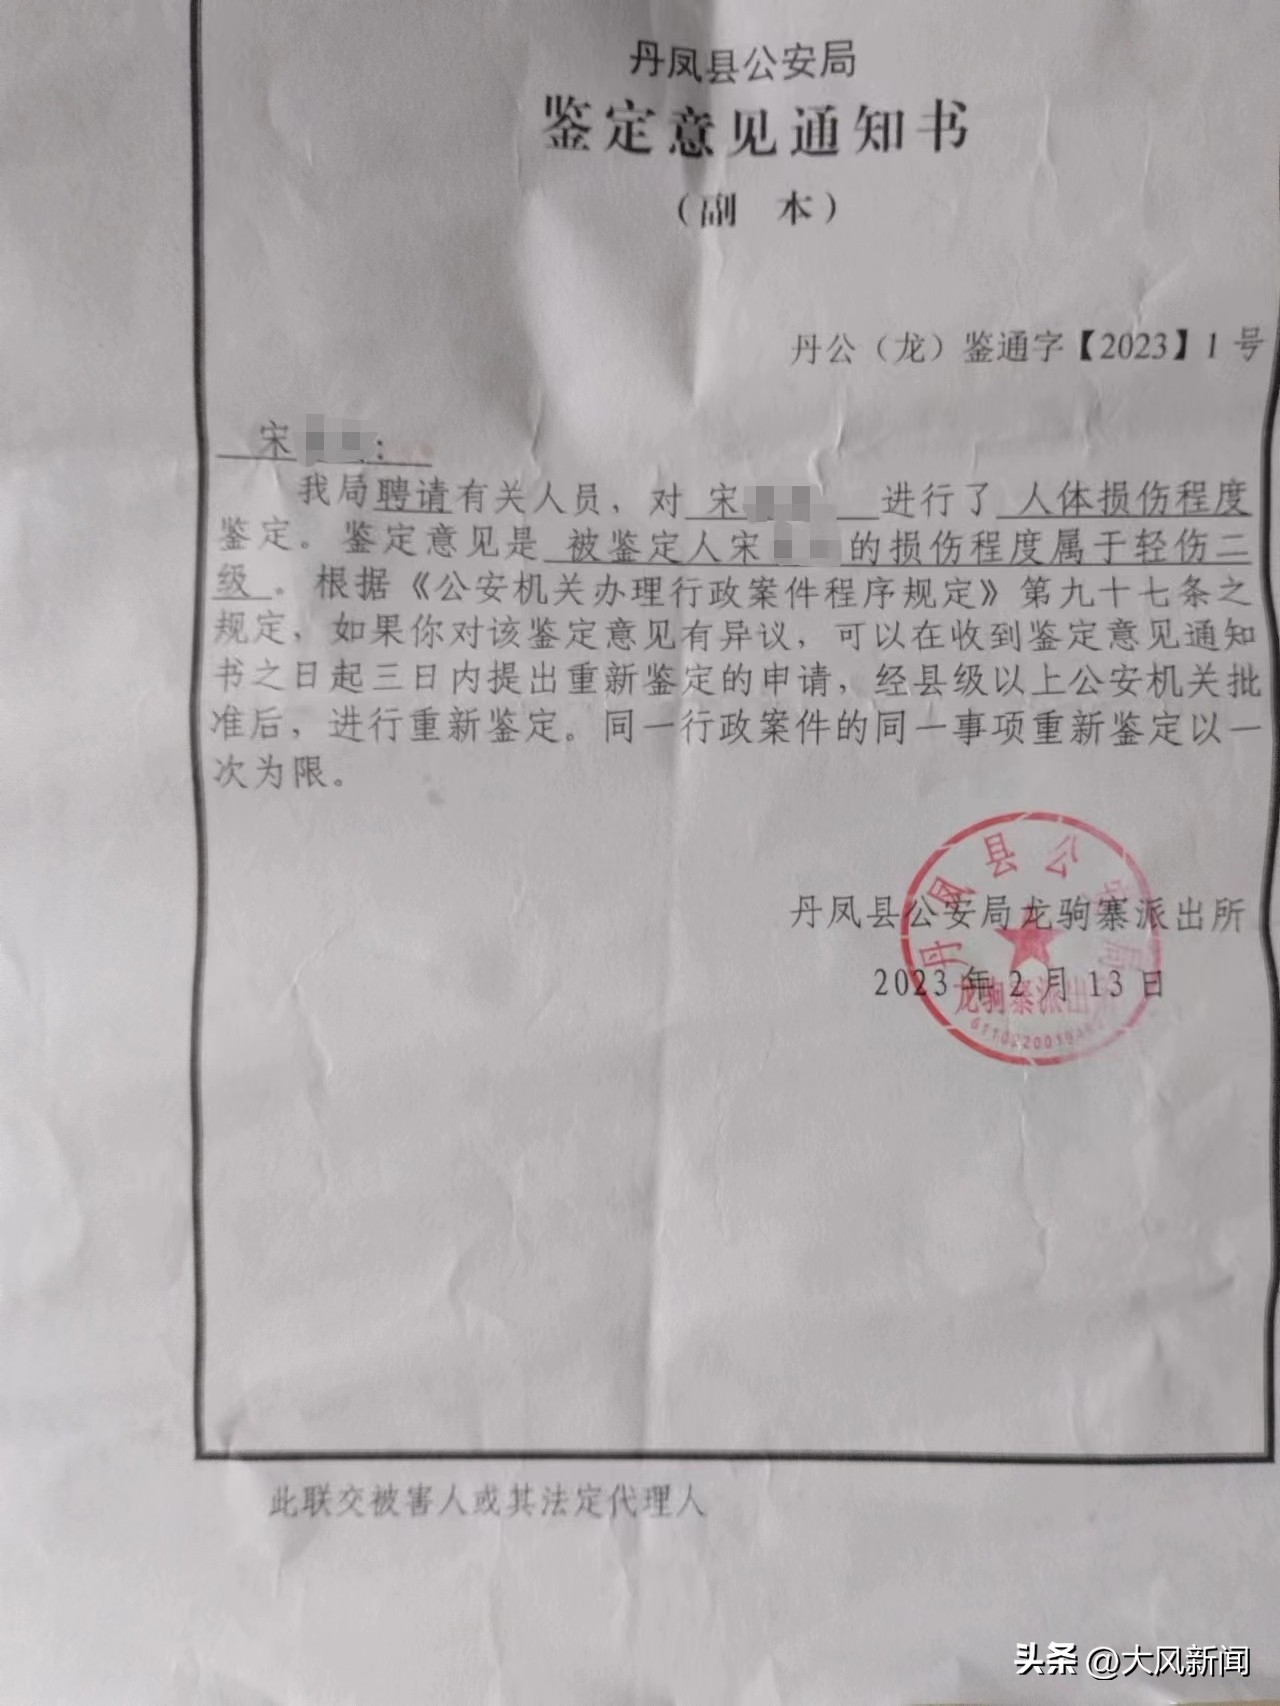 丹凤县公安局
鉴定意见通知书
（副 本）
丹公（龙）鉴通字【2023】1号
宋 ：
我局聘请有关人员，对 宋 进行了 人体损伤程度
鉴定。鉴定意见是 被鉴定人宋 的损伤程度属于轻伤二
级 。根据《公安机关办理行政案件程序规定》第九十七条之
规定，如果你对该鉴定意见有异议，可以在收到鉴定意见通知
书之日起三日内提出重新鉴定的申请，经县级以上公安机关批
准后，进行重新鉴定。同一行政案件的同一事项重新鉴定以一
次为限。
丹凤县公安局龙驹寨派出所
2023 年 2 月 13 日
丹凤县公安局
龙驹寨派出所
此联交被害人或其法定代理人
头条 @大风新闻